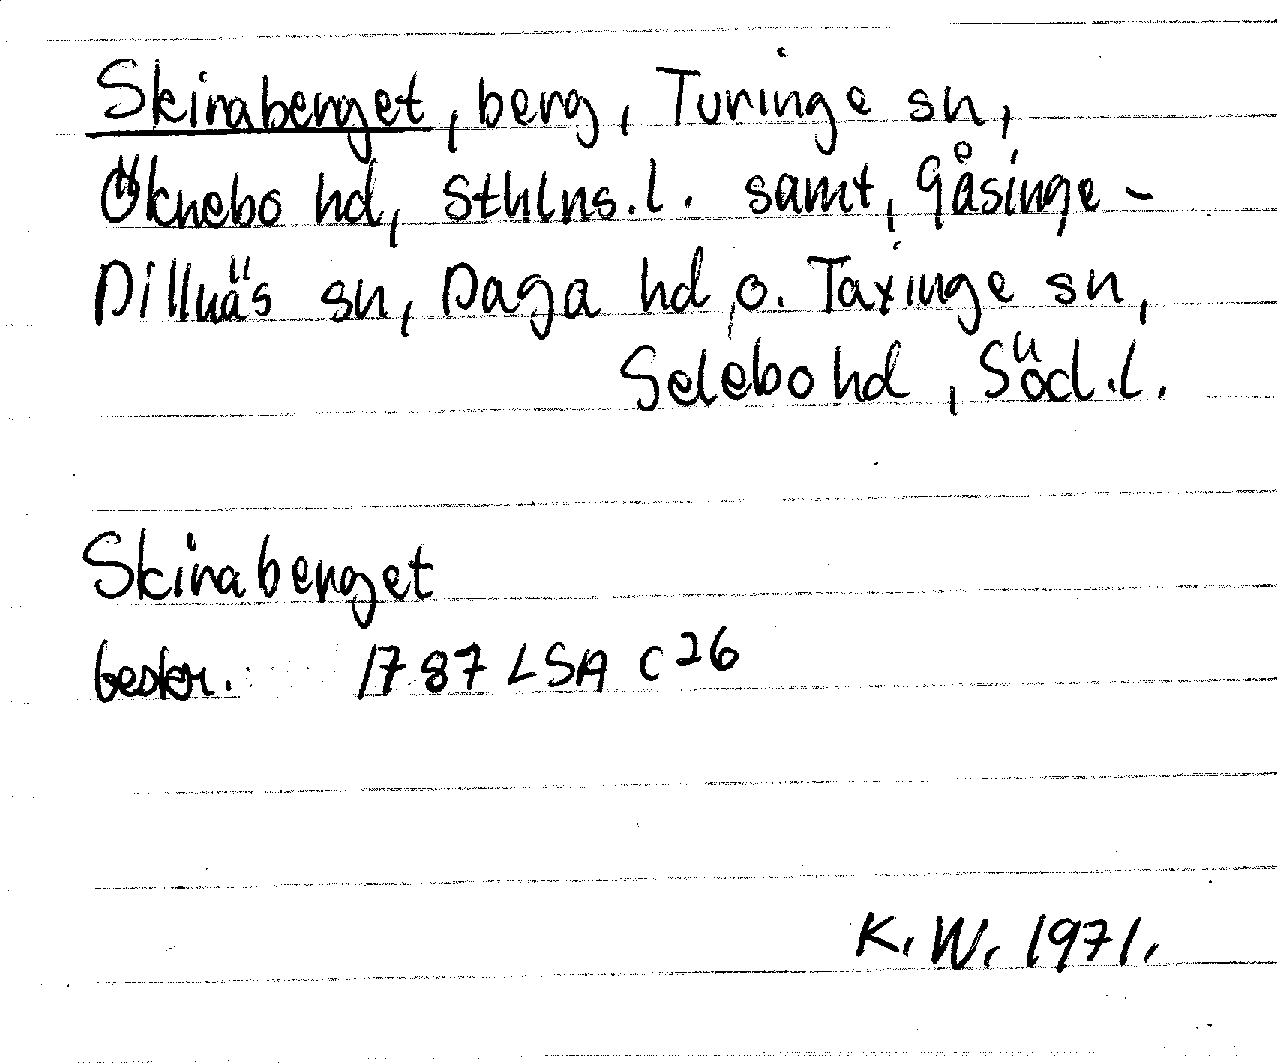 Skiraberget, berg, Turinge sn,
Öknebo hd, Sthlns.l. samt, Gåsinge-
Dillnäs sn, Daga hd, o. Taxinge sn,
Selebo hd, Söd.l.
Skiraberget
beskr. 1787 LSA C26
K.W. 1971.